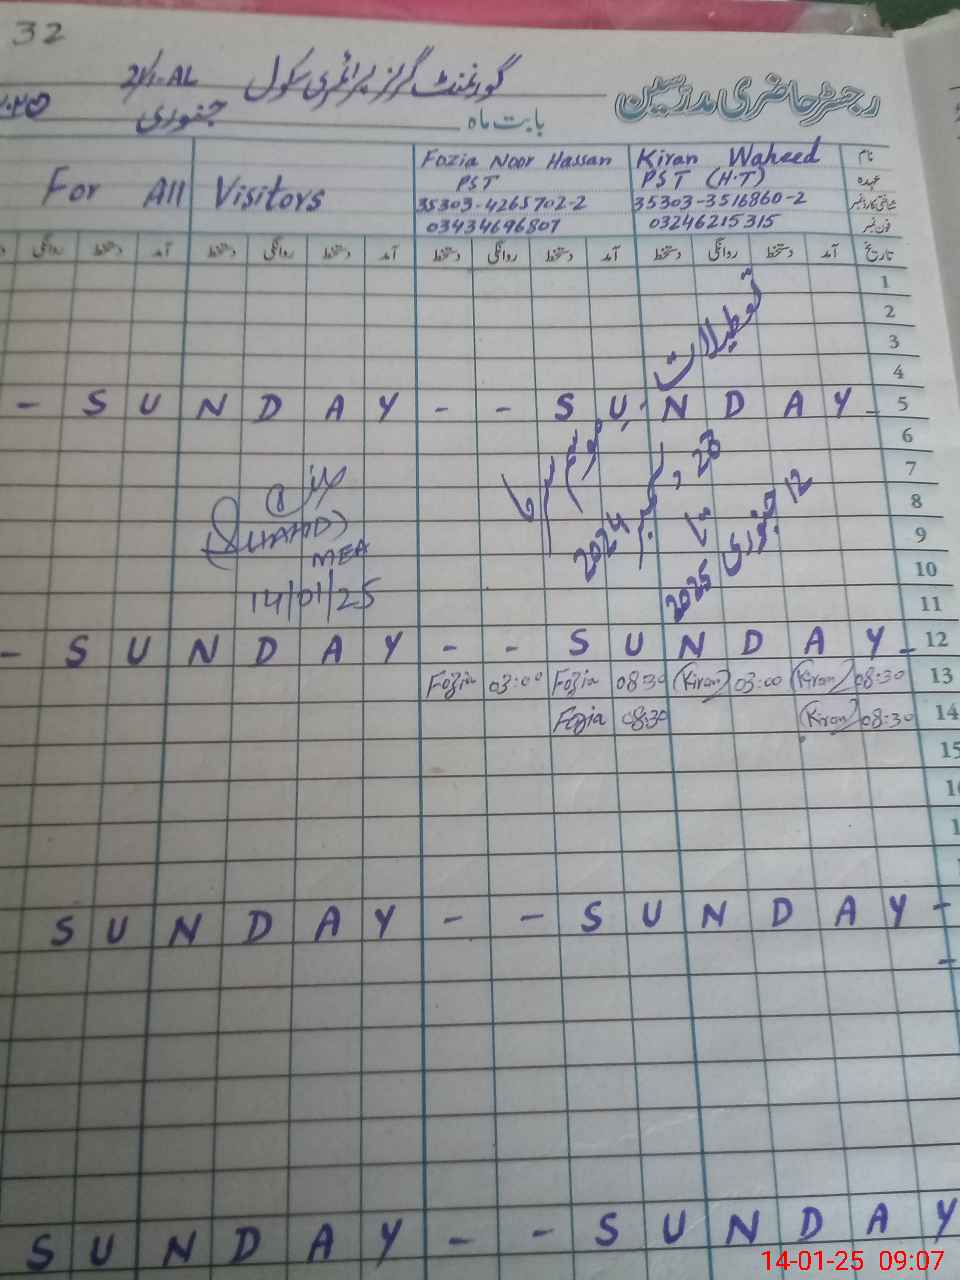 32
رجسٹر حاضری مدرسین
گورنمنٹ گرلز پرائمری سکول 2/1-AL
بابت ماہ جنوری
نام Kiran Waheed Fozia Noor Hassan For All Visitors
عہدہ PST (H.T) PST
35303-3516860-2 35303-4265702-2
فون نمبر 03246215315 03434696807
تاریخ آمد دستخط روانگی دستخط آمد دستخط روانگی دستخط آمد دستخط روانگی دستخط آمد دستخط روانگی
1
2
3
4
5 - S U N D A Y - - S U N D A Y -
6
7
8
9
10
11
12 - S U N D A Y - - S U N D A Y -
تعطیلات
موسم سرما
23 دسمبر 2024
تا
12 جنوری 2025
(SHAHID)
MEA
14/01/25
13 08:30 Kiran 03:00 Kiran 08:30 Fozia 03:00 Fozia
14 08:30 Kiran 08:30 Fozia
15
S U N D A Y - - S U N D A Y -
S U N D A Y - - S U N D A Y
14-01-25 09:07